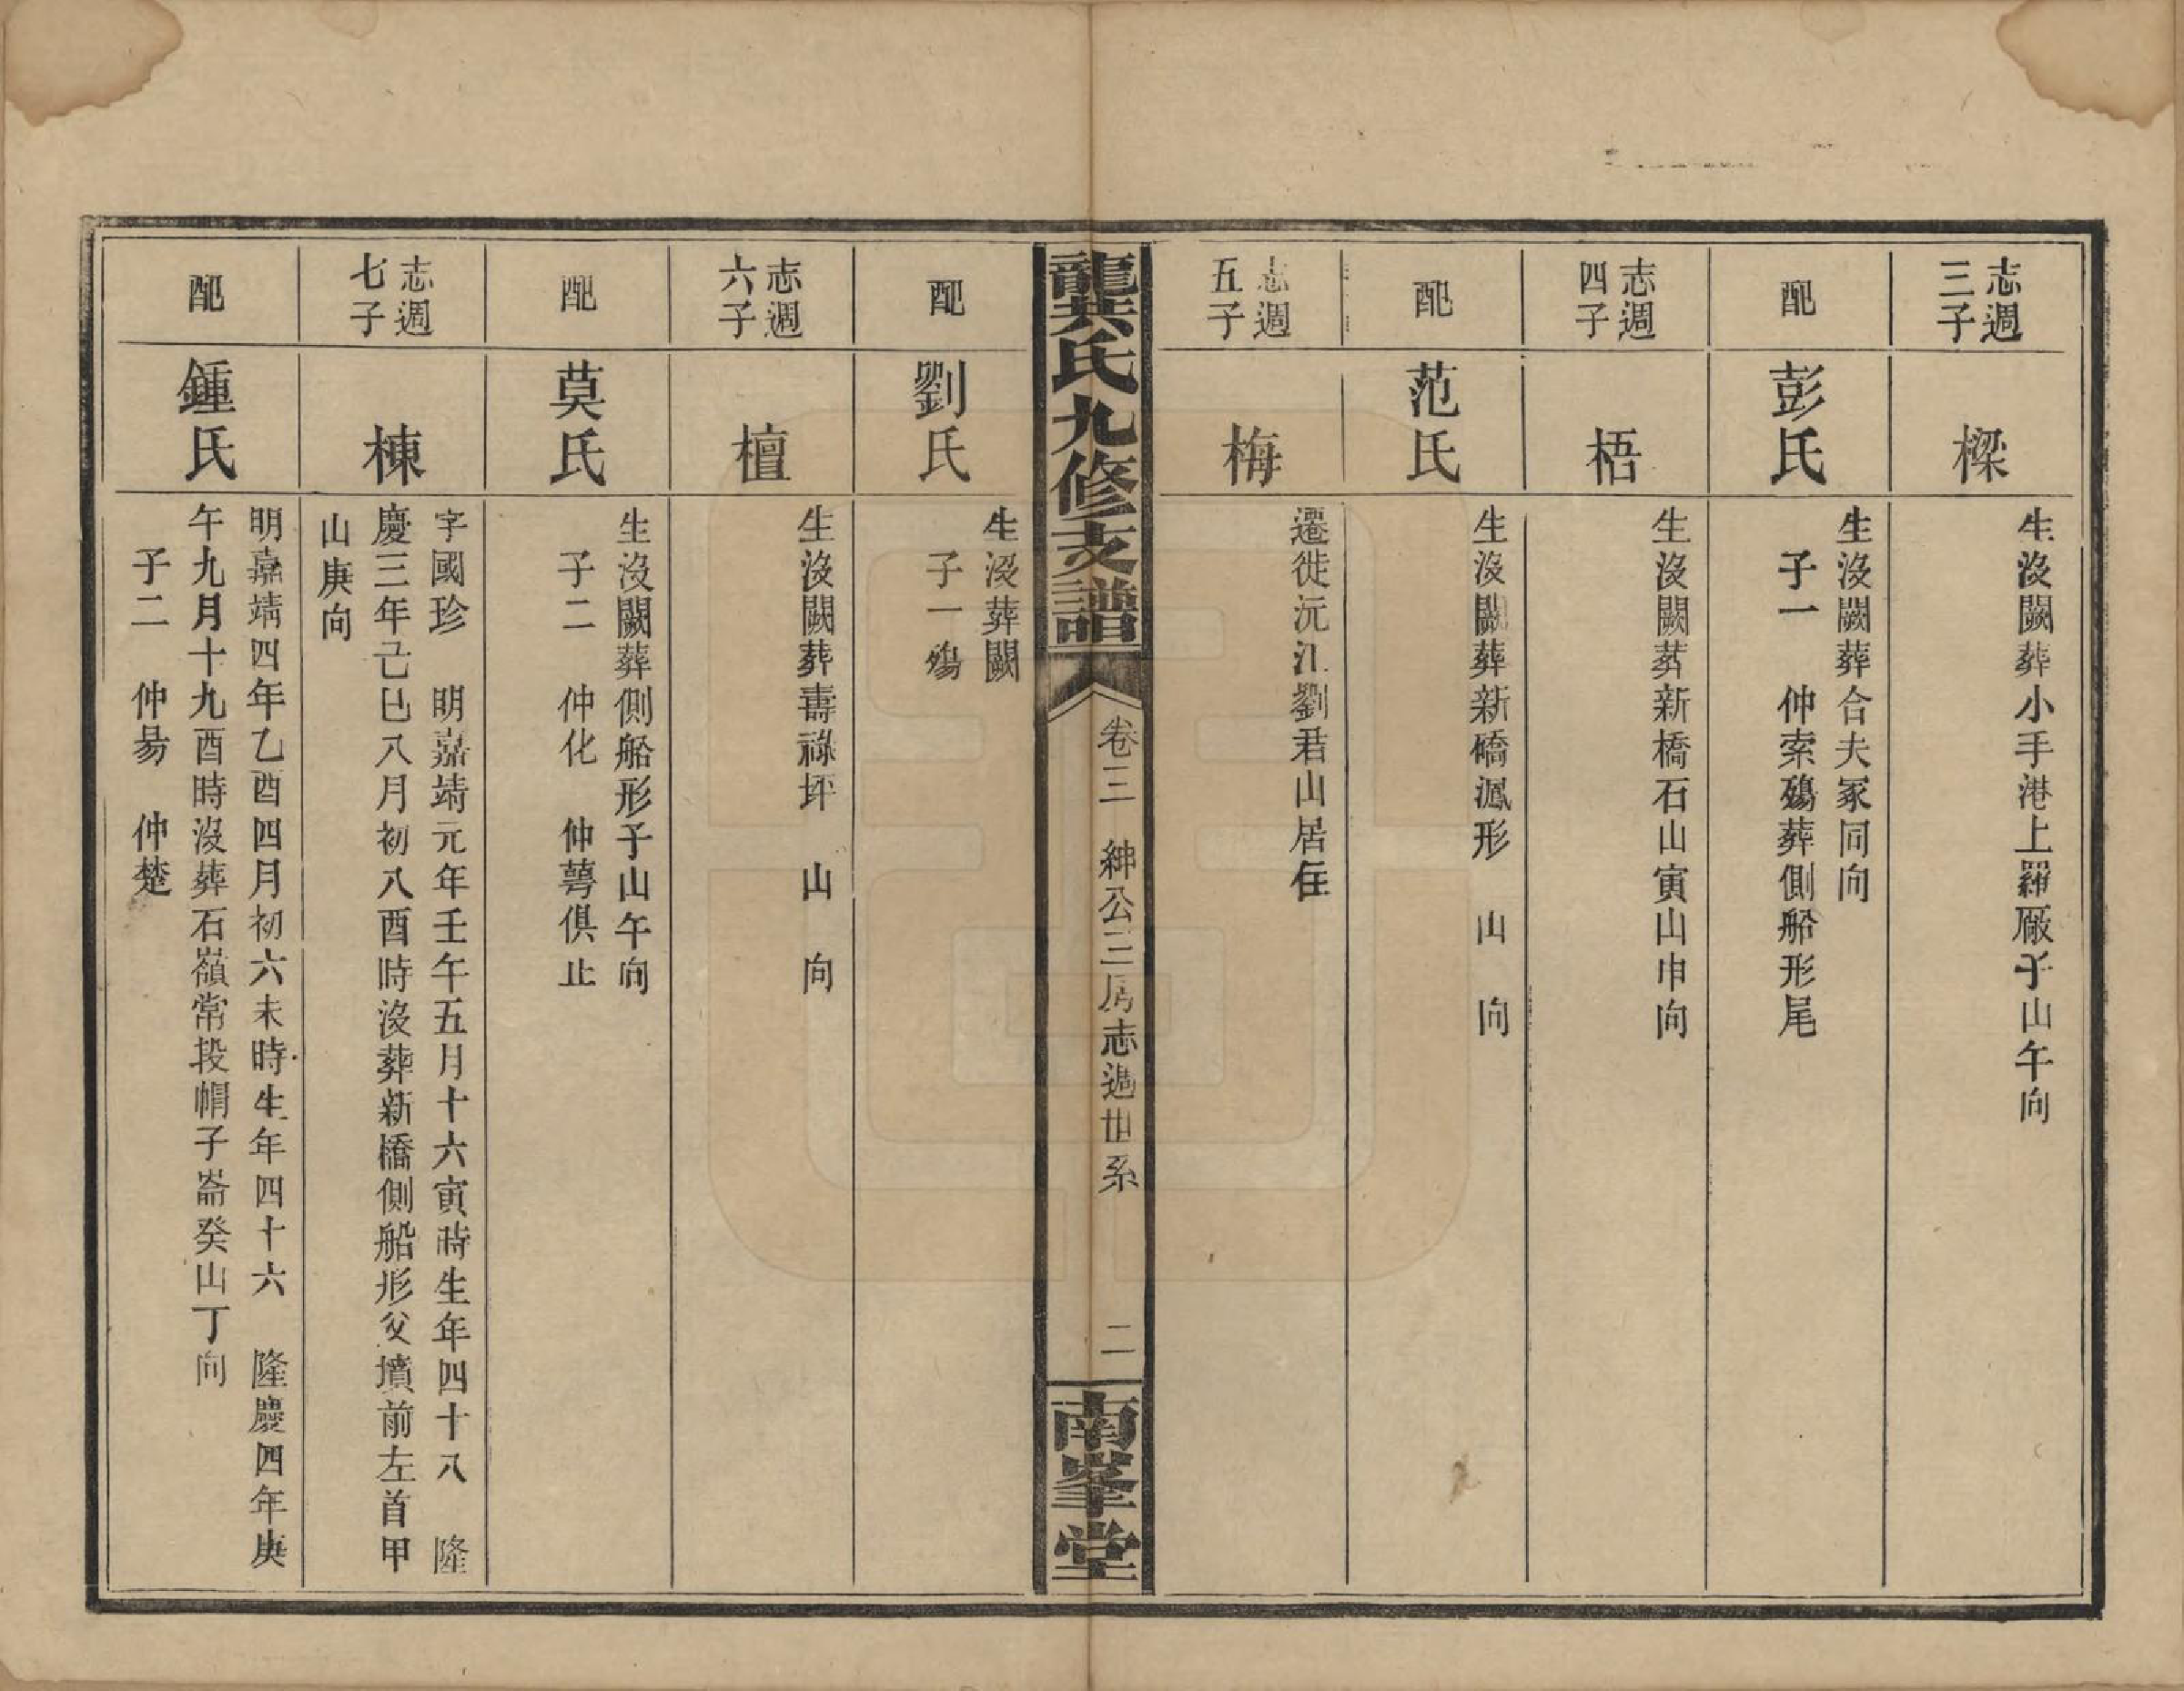 志週
三子
樑
生沒闕葬小手港上羅厰子山午向
配
彭氏
生沒闕葬合夫冢同向
子一　仲索殤葬側船形尾
志週
四子
梧
生沒闕葬新橋石山寅山申向
配
范氏
生沒闕葬新橋鳳形　山　向
志週
五子
梅
遷徙沅江劉君山居住
龔氏九修支譜
卷三　紳公三房志週世系　　二
南峯堂
配
劉氏
生沒葬闕
子一殤
志週
六子
檀
生沒闕葬壽祿坪　山　向
配
莫氏
生沒闕葬側船形子山午向
子二　仲化　仲萼俱止
志週
七子
棟
字國珍　明嘉靖元年壬午五月十六寅時生年四十八　隆
慶三年己巳八月初八酉時沒葬新橋側船形父墳前左首甲
山庚向
配
鍾氏
明嘉靖四年乙酉四月初六未時生年四十六　隆慶四年庚
午九月十九酉時沒葬石嶺常段帽子崙癸山丁向
子二　仲昜　仲楚